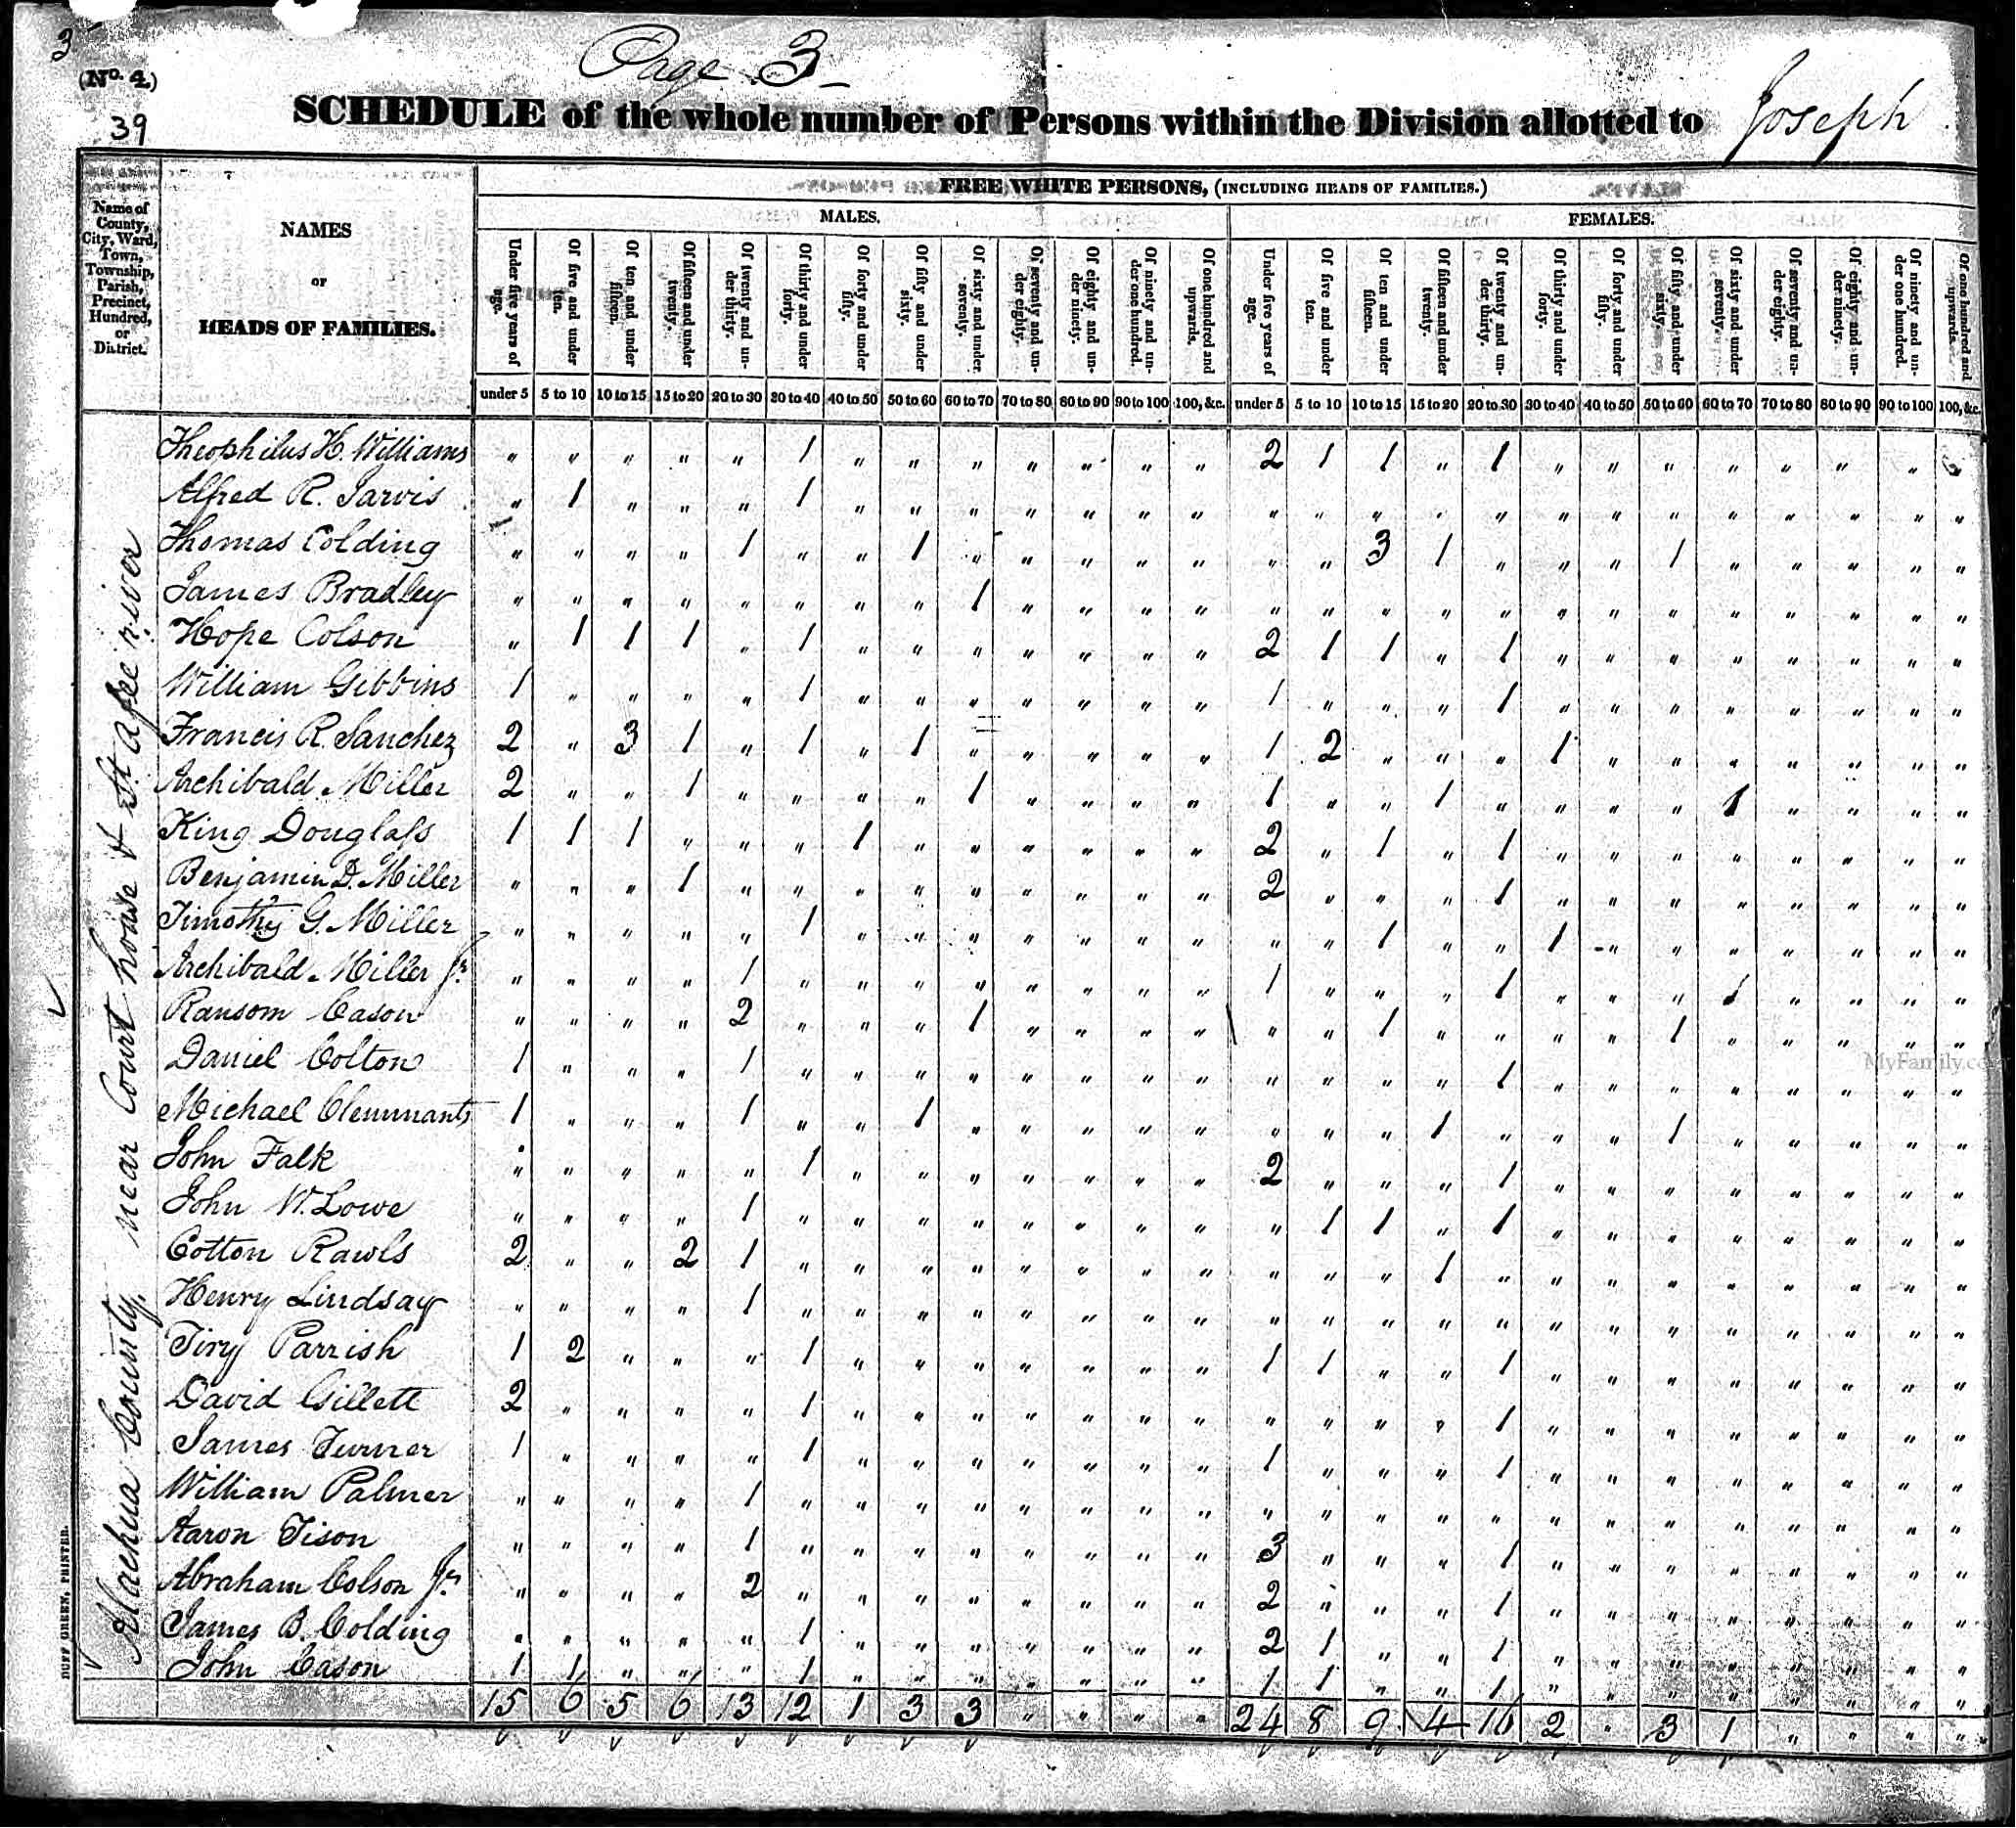 3
(No. 4.)
39
Page 3
SCHEDULE of the whole number of Persons within the Division allotted to Joseph
Name of County, City, Ward, Town, Township, Parish, Precinct, Hundred, or District.
NAMES
OR
HEADS OF FAMILIES.
FREE WHITE PERSONS, (INCLUDING HEADS OF FAMILIES.)
MALES.
FEMALES.
Under five years of age.
Of five and under ten.
Of ten and under fifteen.
Of fifteen and under twenty.
Of twenty and under thirty.
Of thirty and under forty.
Of forty and under fifty.
Of fifty and under sixty.
Of sixty and under seventy.
Of seventy and under eighty.
Of eighty and under ninety.
Of ninety and under one hundred.
Of one hundred and upwards.
Under five years of age.
Of five and under ten.
Of ten and under fifteen.
Of fifteen and under twenty.
Of twenty and under thirty.
Of thirty and under forty.
Of forty and under fifty.
Of fifty and under sixty.
Of sixty and under seventy.
Of seventy and under eighty.
Of eighty and under ninety.
Of ninety and under one hundred.
Of one hundred and upwards.
under 5 5 to 10 10 to 15 15 to 20 20 to 30 30 to 40 40 to 50 50 to 60 60 to 70 70 to 80 80 to 90 90 to 100 100, &c. under 5 5 to 10 10 to 15 15 to 20 20 to 30 30 to 40 40 to 50 50 to 60 60 to 70 70 to 80 80 to 90 90 to 100 100, &c.
Alachua County, near Court house & St. afee river
Theophilus H. Williams " " " " " 1 " " " " " " " 2 1 1 " 1 " " " " " " "
Alfred R. Jarvis " 1 " " " 1 " " " " " " " " " " " " " " " " " " " "
Thomas Colding " " " " 1 " " 1 " " " " " " " 3 1 " " " 1 " " " " "
James Bradley " " " " " " " " 1 " " " " " " " " " " " " " " " " "
Hope Colson " 1 1 1 " 1 " " " " " " " 2 1 1 " 1 " " " " " " " "
William Gibbins 1 " " " " 1 " " " " " " " 1 " " " 1 " " " " " " " "
Francis R. Sanchez 2 " 3 1 " 1 " 1 " " " " " 1 2 " " " 1 " " " " " " "
Archibald Miller 2 " " 1 " " " " 1 " " " " 1 " " 1 " " " " 1 " " " "
King Douglass 1 1 1 " " " 1 " " " " " " 2 " 1 " 1 " " " " " " " "
Benjamin D. Miller " " " 1 " " " " " " " " " 2 " " " 1 " " " " " " " "
Timothy G. Miller " " " " " 1 " " " " " " " " " 1 " " 1 " " " " " " "
Archibald Miller Jr. " " " " 1 " " " " " " " " 1 " " " 1 " " " 1 " " " "
Ransom Cason " " " " 2 " " " 1 " " " " " " 1 " " " " 1 " " " " "
Daniel Colton 1 " " " 1 " " " " " " " " " " " " 1 " " " " " " " "
Michael Clemmants 1 " " " 1 " " 1 " " " " " " " " 1 " " " 1 " " " " "
John Falk " " " " " 1 " " " " " " " 2 " " " 1 " " " " " " " "
John W. Lowe " " " " 1 " " " " " " " " " 1 1 " 1 " " " " " " " "
Cotton Rawls 2 " " 2 1 " " " " " " " " " " " 1 " " " " " " " " "
Henry Lindsay " " " " 1 " " " " " " " " " " " " " " " " " " " " "
Tiry Parrish 1 2 " " " 1 " " " " " " " 1 1 " " 1 " " " " " " " "
David Gillett 2 " " " " 1 " " " " " " " " " " " 1 " " " " " " " "
James Turner 1 " " " " 1 " " " " " " " 1 " " " 1 " " " " " " " "
William Palmer " " " " 1 " " " " " " " " " " " " " " " " " " " " "
Aaron Tison " " " " 1 " " " " " " " " 3 " " " 1 " " " " " " " "
Abraham Colson Jr. " " " " 2 " " " " " " " " 2 " " " 1 " " " " " " " "
James B. Colding " " " " " 1 " " " " " " " 2 1 " " 1 " " " " " " " "
John Cason 1 1 " " " 1 " " " " " " " 1 1 " " 1 " " " " " " " "
15 6 5 6 13 12 1 3 3 " " " " 24 8 9 4 16 2 " 3 1 " " " "
DUFF GREEN, PRINTER.
MyFamily.com